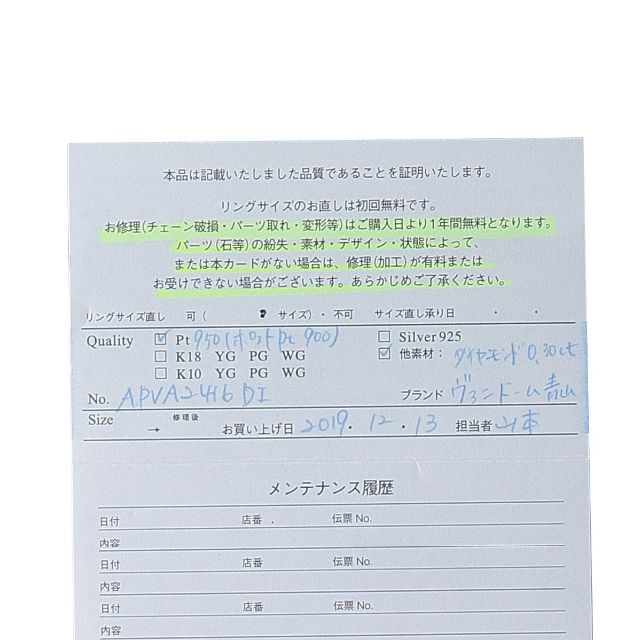 本品は記載いたしました品質であることを証明いたします。
リングサイズのお直しは初回無料です。
お修理(チェーン破損・パーツ取れ・変形等)はご購入日より1年間無料となります。
パーツ(石等)の紛失・素材・デザイン・状態によって、
または本カードがない場合は、修理(加工)が有料または
お受けできない場合がございます。あらかじめご了承ください。
リングサイズ直し 可( サイズ)・不可 サイズ直し承り日 ・ ・
Quality ☑ Pt 950(ポストPt 900) □ Silver925
□ K18 YG PG WG ☑ 他素材: ダイヤモンド0.30ct
□ K10 YG PG WG
No. APVA2416DI ブランド ヴァンドーム青山
Size → 修理後 お買い上げ日 2019・12・13 担当者 山本
メンテナンス履歴
日付 店番 伝票No.
内容
日付 店番 伝票No.
内容
日付 店番 伝票No.
内容